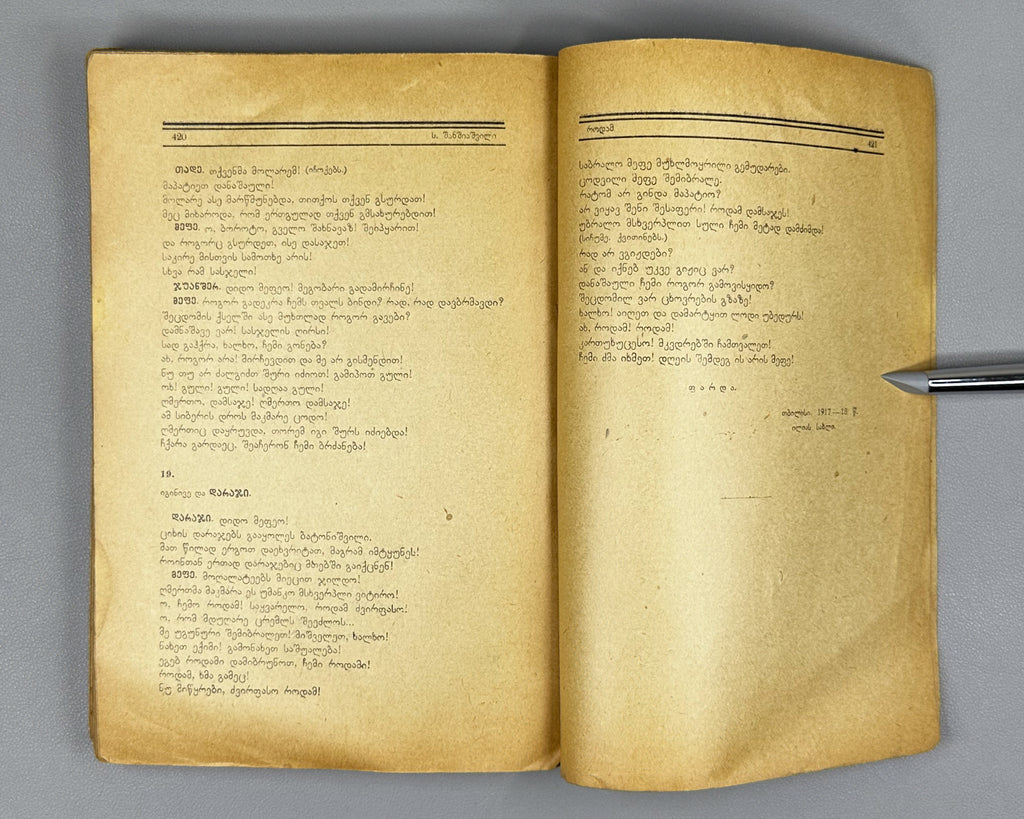 420
ს. შანშიაშვილი
თადე. თქვენმა მოლარემ! (იჩოქებს.)
მაპატიეთ დანაშაული!
მოლარე ასე მარწმუნებდა, თითქოს თქვენ გსურდათ!
მეც მიხაროდა, რომ ერთგულად თქვენ გმსახურებდით!
მეფე. ო, ბოროტო, გველო შახნავაზ! შეიპყარით!
და როგორც გსურდეთ, ისე დასაჯეთ!
საკირე მისთვის სამოთხე არის!
სხვა რამ სასჯელი!
ჯუანშერ. დიდო მეფეო! მეგობარი გადამირჩინე!
მეფე. როგორ გადეკრა ჩემს თვალს ბინდი? რად, რად დავბრმავდი?
შეცდომის ქსელში ასე მუხთლად როგორ გავები?
დამნაშავე ვარ! სასჯელის ღირსი!
სად გაჰქრა, ხალხო, ჩემი გონება?
ახ, როგორ არა! მირჩევდით და მე არ გისმენდით!
ნუ თუ არ ძალგიძთ შური იძიოთ! გამიპოთ გული!
ოხ! გული! გული! სადღაა გული!
ღმერთო, დამსაჯე! ღმერთო დამსაჯე!
ამ სიბერის დროს მაკმარე ცოდო!
ღმერთიც დაყრუვდა, თორემ იგი შურს იძიებდა!
ჩქარა გარდაეც, შეაჩერონ ჩემი ბრძანება!
19.
იგინივე და დარაჯი.
დარაჯი. დიდო მეფეო!
ციხის დარაჯებს გააყოლეს ბატონიშვილი.
მათ წილად ერგოთ დაეხვრიტათ, მაგრამ იმტყუნეს!
როინთან ერთად დარაჯებიც მთებში გაიქცნენ!
მეფე. მოღალატეებს მიეცით ჯილდო!
ღმერთმა მაკმარა ეს უმანკო მსხვერპლი ვიტირო!
ო, ჩემო როდამ! საყვარელო, როდამ ძვირფასო!
ო, რომ მდუღარე ცრემლს შეეძლოს...
მე უგუნური შემიბრალეთ! მიშველეთ, ხალხო!
ნახეთ ექიმი! გამონახეთ საშუალება!
ეგებ როდამი დამიბრუნოთ, ჩემი როდამი!
როდამ, ხმა გამეც!
ნუ მიწყრები, ძვირფასო როდამ!
როდამ
421
საბრალო მეფე მუხლმოყრილი გემუდარები.
ცოდვილი მეფე შემიბრალე.
რატომ არ გინდა მაპატიო?
არ ვიყავ შენი შესაფერი! როდამ დამსაჯეს!
უბრალო მსხვერპლით სული ჩემი მეტად დამძიმდა!
(სიჩუმე. ქვითინებს.)
რად არ ვგიჟდები?
ან და იქნებ უკვე გიჟიც ვარ?
დანაშაული ჩემი როგორ გამოვისყიდო?
შეცდომილ ვარ ცხოვრების გზაზე!
ხალხო! აიღეთ და დამარტყით ლოდი უბედურს!
ახ, როდამ! როდამ!
კართუხუცესო! მკვდრებში ჩამთვალეთ!
ჩემი ძმა იხმეთ! დღეის შემდეგ ის არის მეფე!
ფარდა.
თბილისი. 1917—18 წ.
ილიას სახლი.